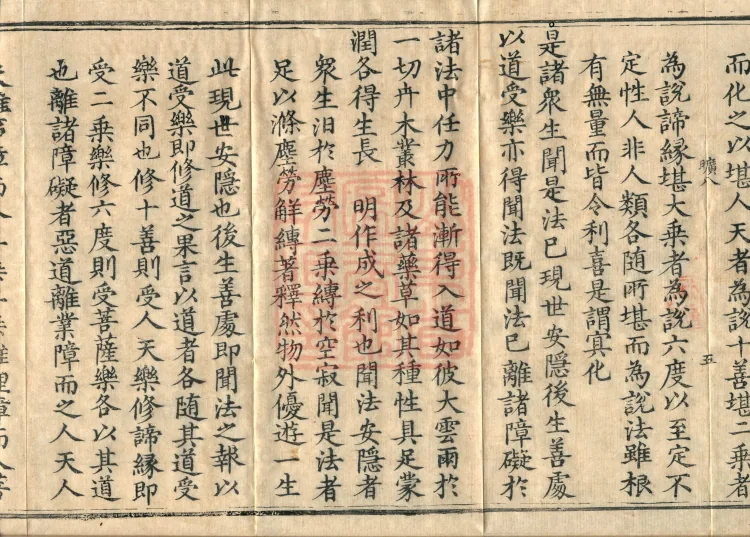 而化之以堪人天者為說十善堪二乘者
為說諦緣堪大乘者為說六度以至定不
定性人非人類各随所堪而為說法雖根
有無量而皆令利喜是謂冥化
是諸衆生聞是法已現世安隱後生善處
以道受樂亦得聞法既聞法已離諸障礙於
諸法中任力所能漸得入道如彼大雲雨於
一切卉木叢林及諸藥草如其種性具足蒙
潤各得生長 明作成之利也聞法安隱者
衆生汨於塵勞二乘縛於空寂聞是法者
足以滌塵勞解縛著釋然物外優遊一生
此現世安隱也後生善處即聞法之報以
道受樂即修道之果言以道者各随其道受
樂不同也修十善則受人天樂修諦緣即
受二乘樂修六度則受菩薩樂各以其道
也離諸障礙者惡道離業障而之人天人
五